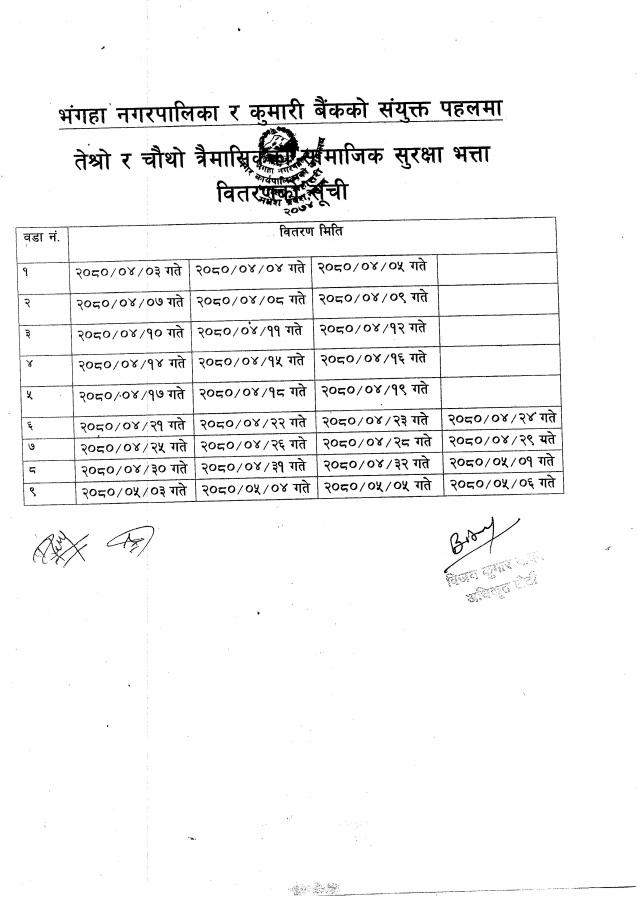 भंगहा नगरपालिका र कुमारी बैंकको संयुक्त पहलमा
तेश्रो र चौथो त्रैमासिकको सामाजिक सुरक्षा भत्ता
वितरणको सूची
२०७४
वडा नं. वितरण मिति
१ २०८०/०४/०३ गते २०८०/०४/०४ गते २०८०/०४/०५ गते
२ २०८०/०४/०७ गते २०८०/०४/०८ गते २०८०/०४/०९ गते
३ २०८०/०४/१० गते २०८०/०४/११ गते २०८०/०४/१२ गते
४ २०८०/०४/१४ गते २०८०/०४/१५ गते २०८०/०४/१६ गते
५ २०८०/०४/१७ गते २०८०/०४/१८ गते २०८०/०४/१९ गते
६ २०८०/०४/२१ गते २०८०/०४/२२ गते २०८०/०४/२३ गते २०८०/०४/२४ गते
७ २०८०/०४/२५ गते २०८०/०४/२६ गते २०८०/०४/२८ गते २०८०/०४/२९ गते
८ २०८०/०४/३० गते २०८०/०४/३१ गते २०८०/०४/३२ गते २०८०/०५/०१ गते
९ २०८०/०५/०३ गते २०८०/०५/०४ गते २०८०/०५/०५ गते २०८०/०५/०६ गते
विजय कुमार
अधिकृत छैटौं